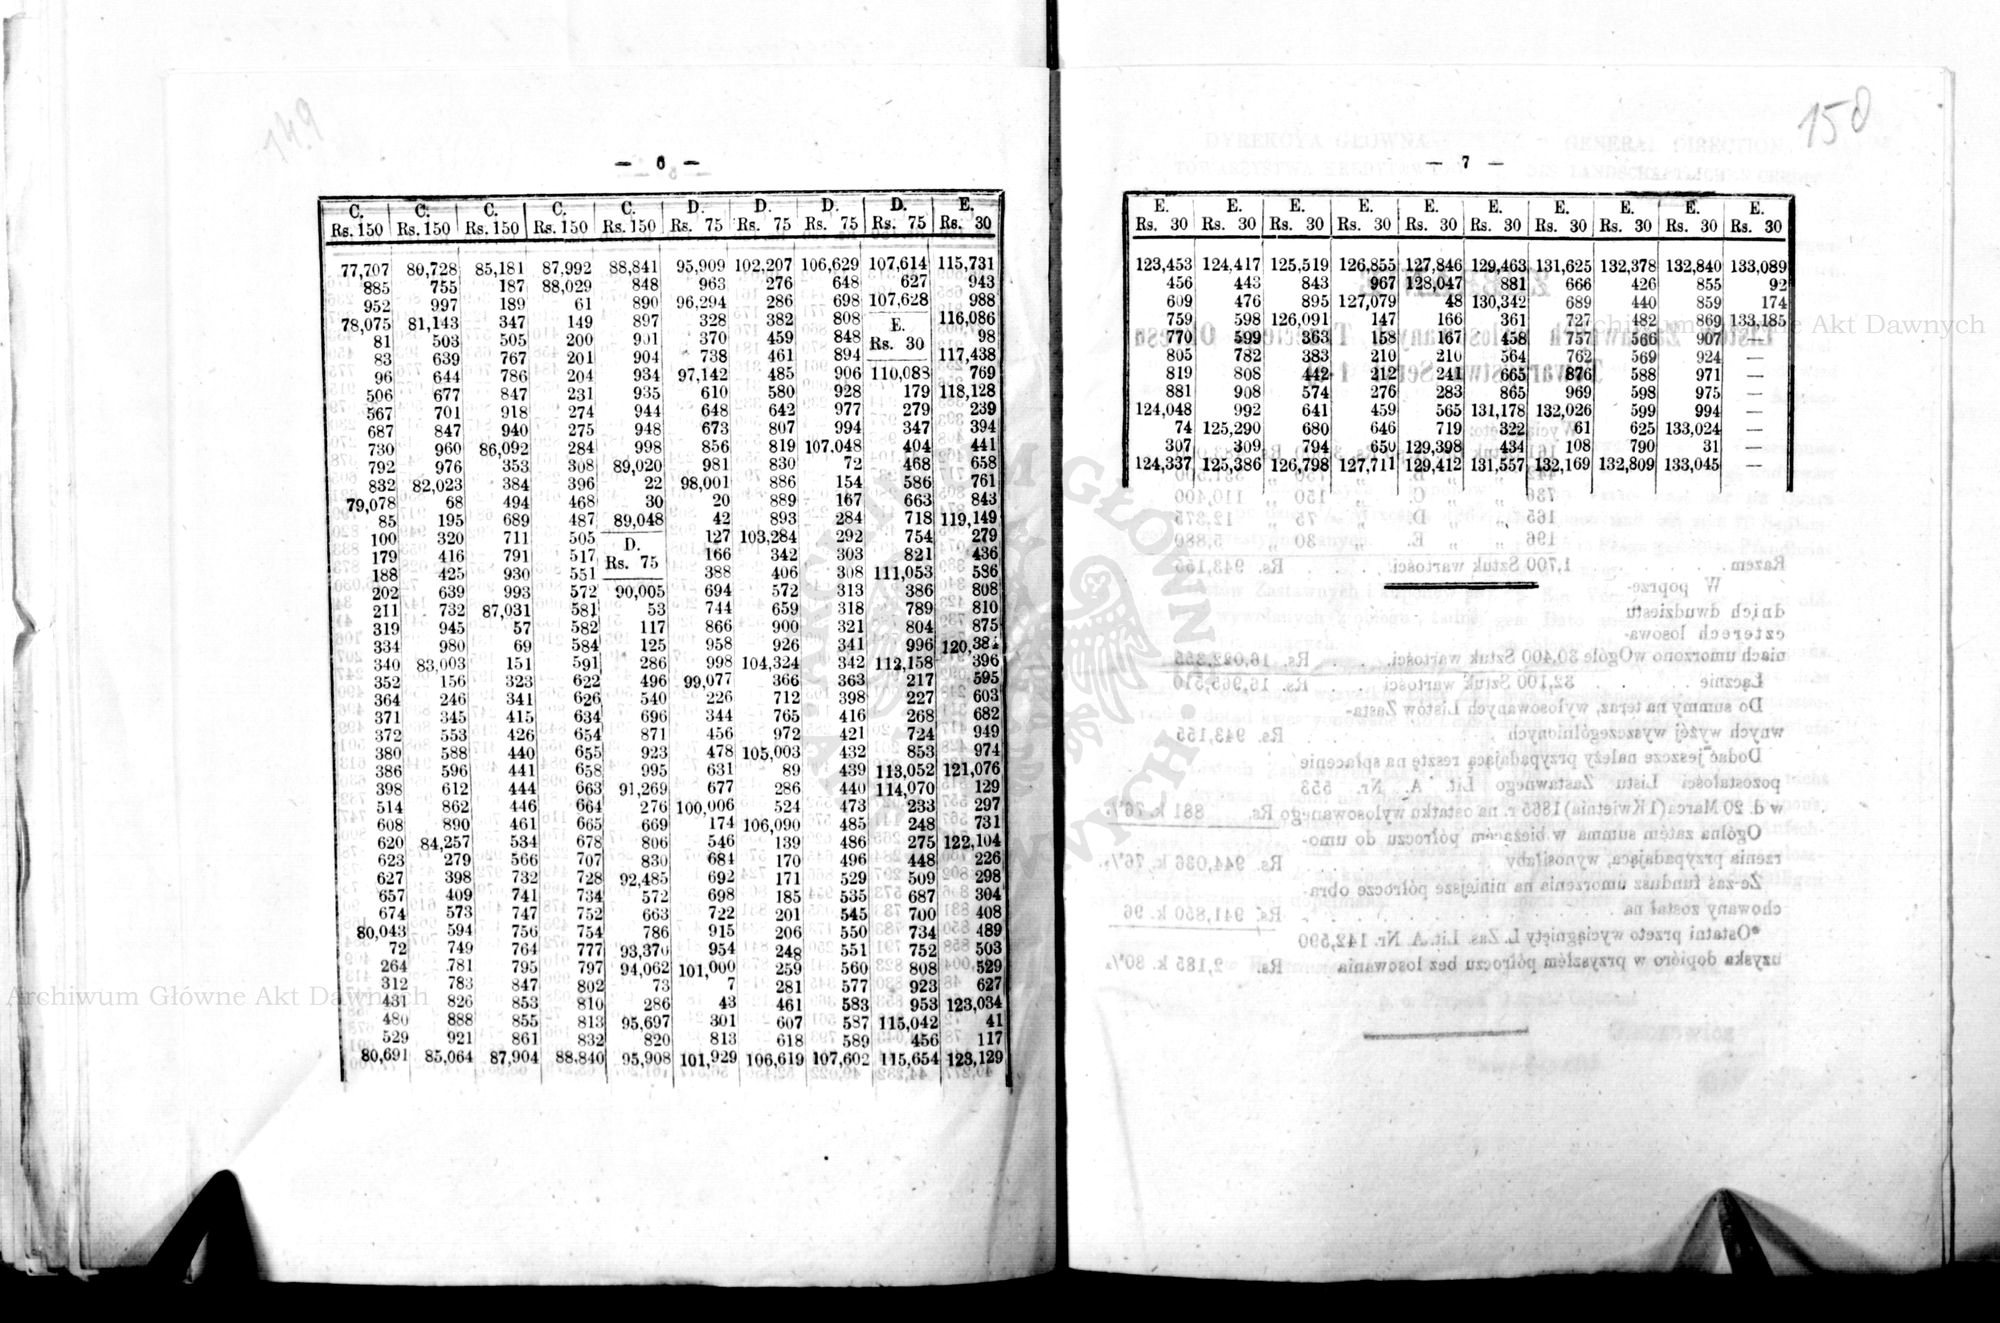 149
— 6 —
C. C. C. C. C. D. D. D. D. E.
Rs. 150 Rs. 150 Rs. 150 Rs. 150 Rs. 150 Rs. 75 Rs. 75 Rs. 75 Rs. 75 Rs. 30
77,707 80,728 85,181 87,992 88,841 95,909 102,207 106,629 107,614 115,731
885 755 187 88,029 848 963 276 648 627 943
952 997 189 61 890 96,294 286 698 107,628 988
78,075 81,143 347 149 897 328 382 808 E. 116,086
81 503 505 200 901 370 459 848 Rs. 30 98
83 639 767 201 904 738 461 894 117,438
96 644 786 204 934 97,142 485 906 110,083 769
506 677 847 231 935 610 580 928 179 118,128
567 701 918 274 944 648 642 977 279 239
687 847 940 275 948 673 807 994 347 394
730 960 86,092 284 998 856 819 107,048 404 441
792 976 353 308 89,020 981 830 72 468 658
832 82,023 384 396 22 98,001 886 154 586 761
79,078 68 494 468 30 20 889 167 663 843
85 195 689 487 89,048 42 893 284 718 119,149
100 320 711 505 D. 127 103,284 292 754 279
179 416 791 517 Rs. 75 166 342 303 821 436
188 425 930 551 388 406 308 111,053 536
202 639 993 572 90,005 694 572 313 386 808
211 732 87,031 581 53 744 659 318 789 810
319 945 57 582 117 866 900 321 804 875
334 980 69 584 125 958 926 341 996 120,384
340 83,003 151 591 286 998 104,324 342 112,158 396
352 156 323 622 496 99,077 366 363 217 595
364 246 341 626 540 226 712 398 227 603
371 345 415 634 696 344 765 416 268 682
372 553 426 654 871 456 972 421 724 949
380 588 440 655 923 478 105,003 432 853 974
386 596 441 658 995 631 89 439 113,052 121,076
398 612 444 663 91,269 677 286 440 114,070 129
514 862 446 664 276 100,006 524 473 233 297
608 890 461 665 669 174 106,090 485 248 731
620 84,257 534 678 806 546 139 486 275 122,104
623 279 566 707 830 684 170 496 448 226
627 398 732 728 92,485 692 171 529 509 298
657 409 741 734 572 698 185 535 687 304
674 573 747 752 663 722 201 545 700 408
80,043 594 756 754 786 915 206 550 734 489
72 749 764 777 93,370 954 248 551 752 503
264 781 795 797 94,062 101,000 259 560 808 529
312 783 847 802 73 7 281 577 923 627
431 826 853 810 286 43 461 583 953 123,034
480 888 855 813 95,697 301 607 587 115,042 41
529 921 861 832 820 813 618 589 456 117
80,691 85,064 87,904 88,840 95,908 101,929 106,619 107,602 115,654 123,129
150
— 7 —
E. E. E. E. E. E. E. E. E. E.
Rs. 30 Rs. 30 Rs. 30 Rs. 30 Rs. 30 Rs. 30 Rs. 30 Rs. 30 Rs. 30 Rs. 30
123,453 124,417 125,519 126,855 127,846 129,463 131,625 132,378 132,840 133,089
456 443 843 967 128,047 881 666 426 855 92
609 476 895 127,079 48 130,342 689 440 859 174
759 598 126,091 147 166 361 727 482 869 133,185
770 599 363 158 167 458 757 566 907 —
805 782 383 210 210 564 762 569 924 —
819 808 442 212 241 665 876 588 971 —
881 908 574 276 283 865 969 598 975 —
124,048 992 641 459 565 131,178 132,026 599 994 —
74 125,290 680 646 719 322 61 625 133,024 —
307 309 794 650 129,398 434 108 790 31 —
124,337 125,386 126,798 127,711 129,412 131,557 132,169 132,809 133,045 —
Archiwum Główne Akt Dawnych
Archiwum Główne Akt Dawnych